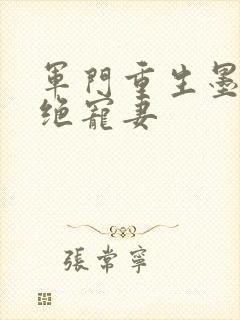 軍門重生墨
绝寵妻
張常寧